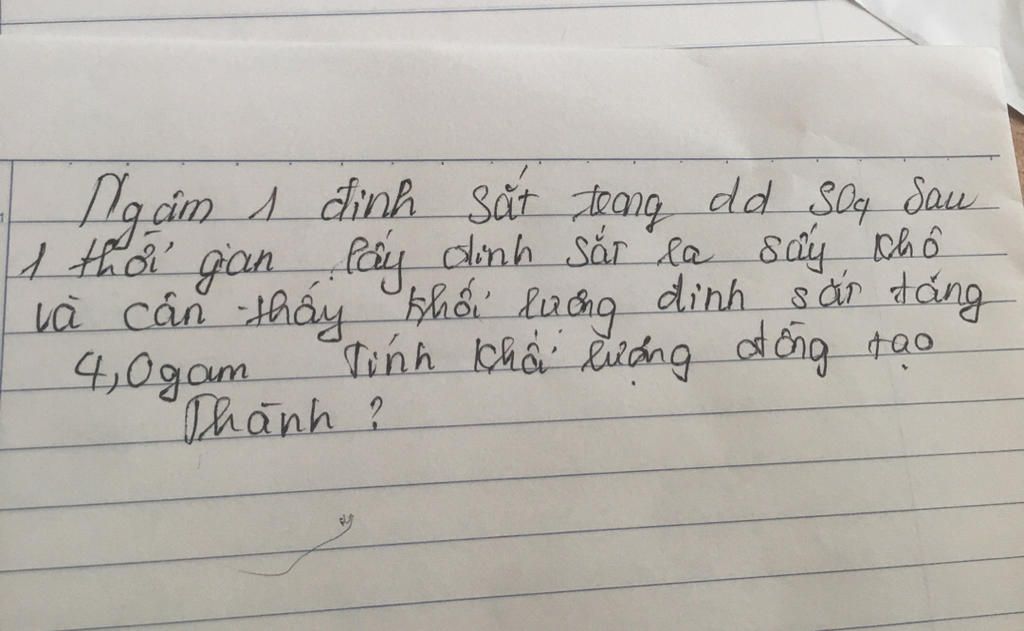 Ngâm 1 đinh sắt trong dd SO4 Sau
1 thời gian lấy đinh sắt ra sấy khô
và cân thấy khối lượng đinh sắt tăng
4,0gam Tính khối lượng đồng tạo
Thành ?